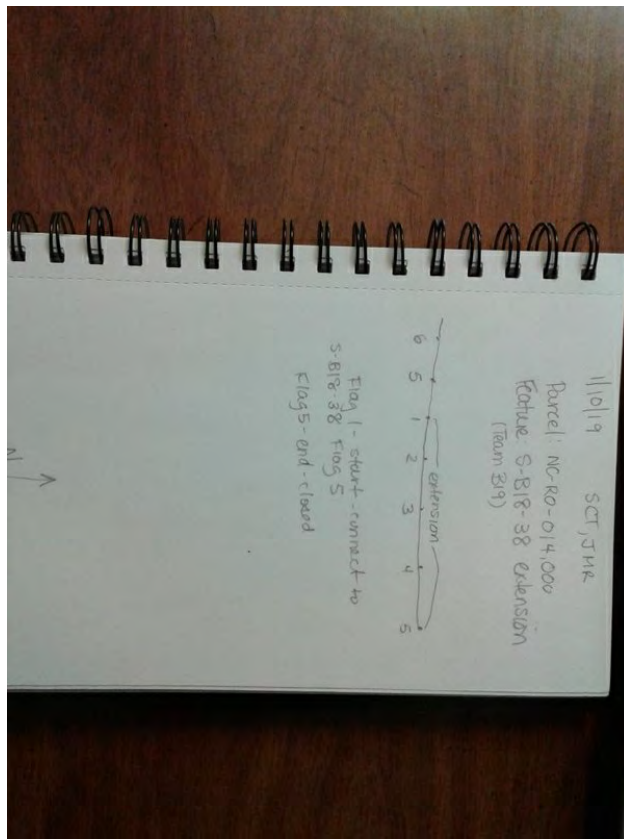 1/10/19 SCT, JMR
Parcel: NC-RO-014.000
Feature S-B18-38 extension
(Team B19)
extension
6 5 1 2 3 4 5
Flag 1 - start - connect to
S-B18-38 Flag 5
Flag 5 - end - closed
N